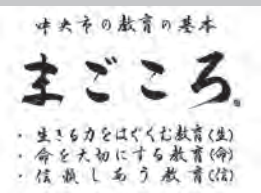 中央市の教育の基本
まごころ
・生きる力をはぐくむ教育(生)
・命を大切にする教育(命)
・信頼しあう教育(信)